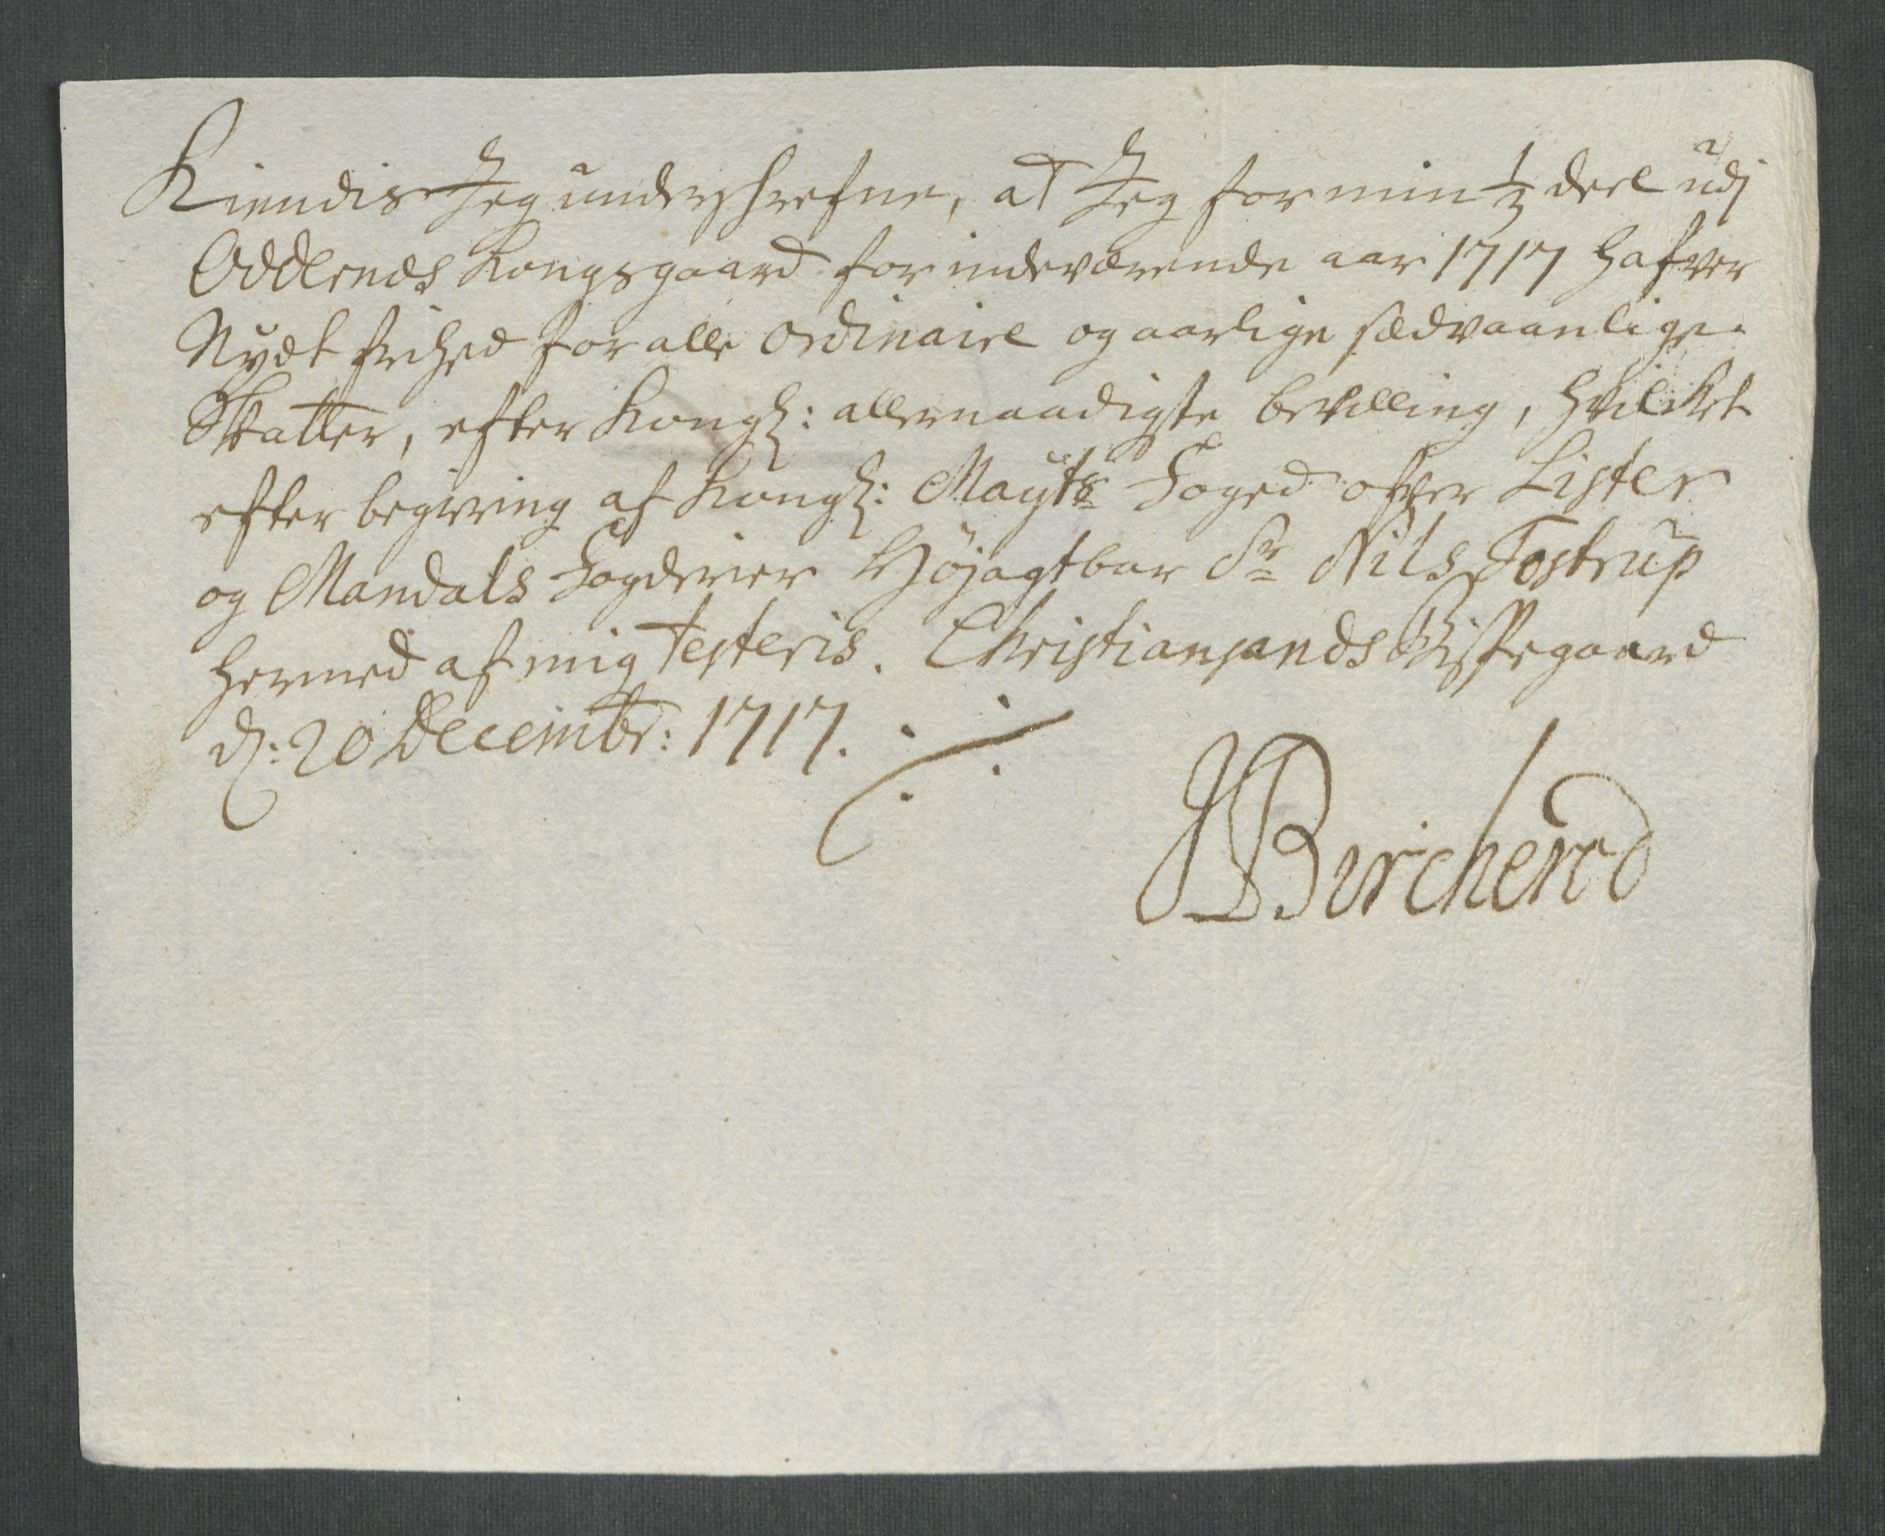 Kiendis Jeg underskrefne, at Jeg for min 1/3 deel udj
Oddernes Kongsgaard for indeværende aar 1717 hafver
Nydt frihed for alle ordinaire og aarlige sædvaanlige
Skatter, efter Kongl: allernaadigste bevilling, hvilket
efter begiering af Kongl: Mayts Foged ofver Lister
og Mandals Fogderier Høyagtbar Sr Nils Tostrup
hermed af mig testeris. Christiansands Bispegaard
d: 20 Decembr: 1717.
JBircherod